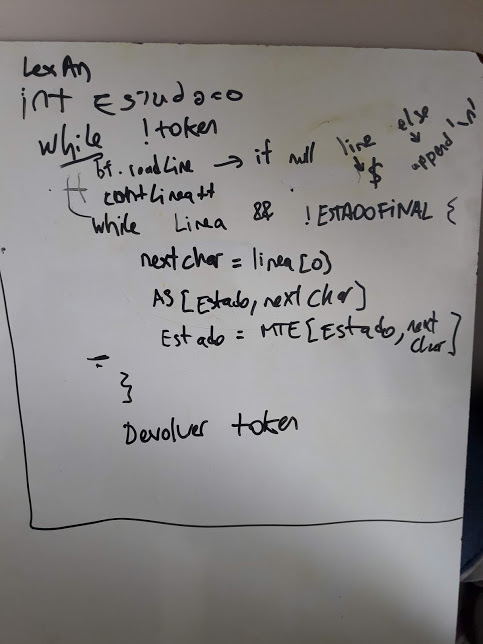 LexAn
int Estudo=0
while !token
bf.readLine → if null line else
↓$ ↓ append '\n'
contLinea++
while Linea && !ESTADOFINAL {
nextchar = linea[0]
AS[Estado, nextChar]
Estado = MTE[Estado, next
char]
}
Devolver token